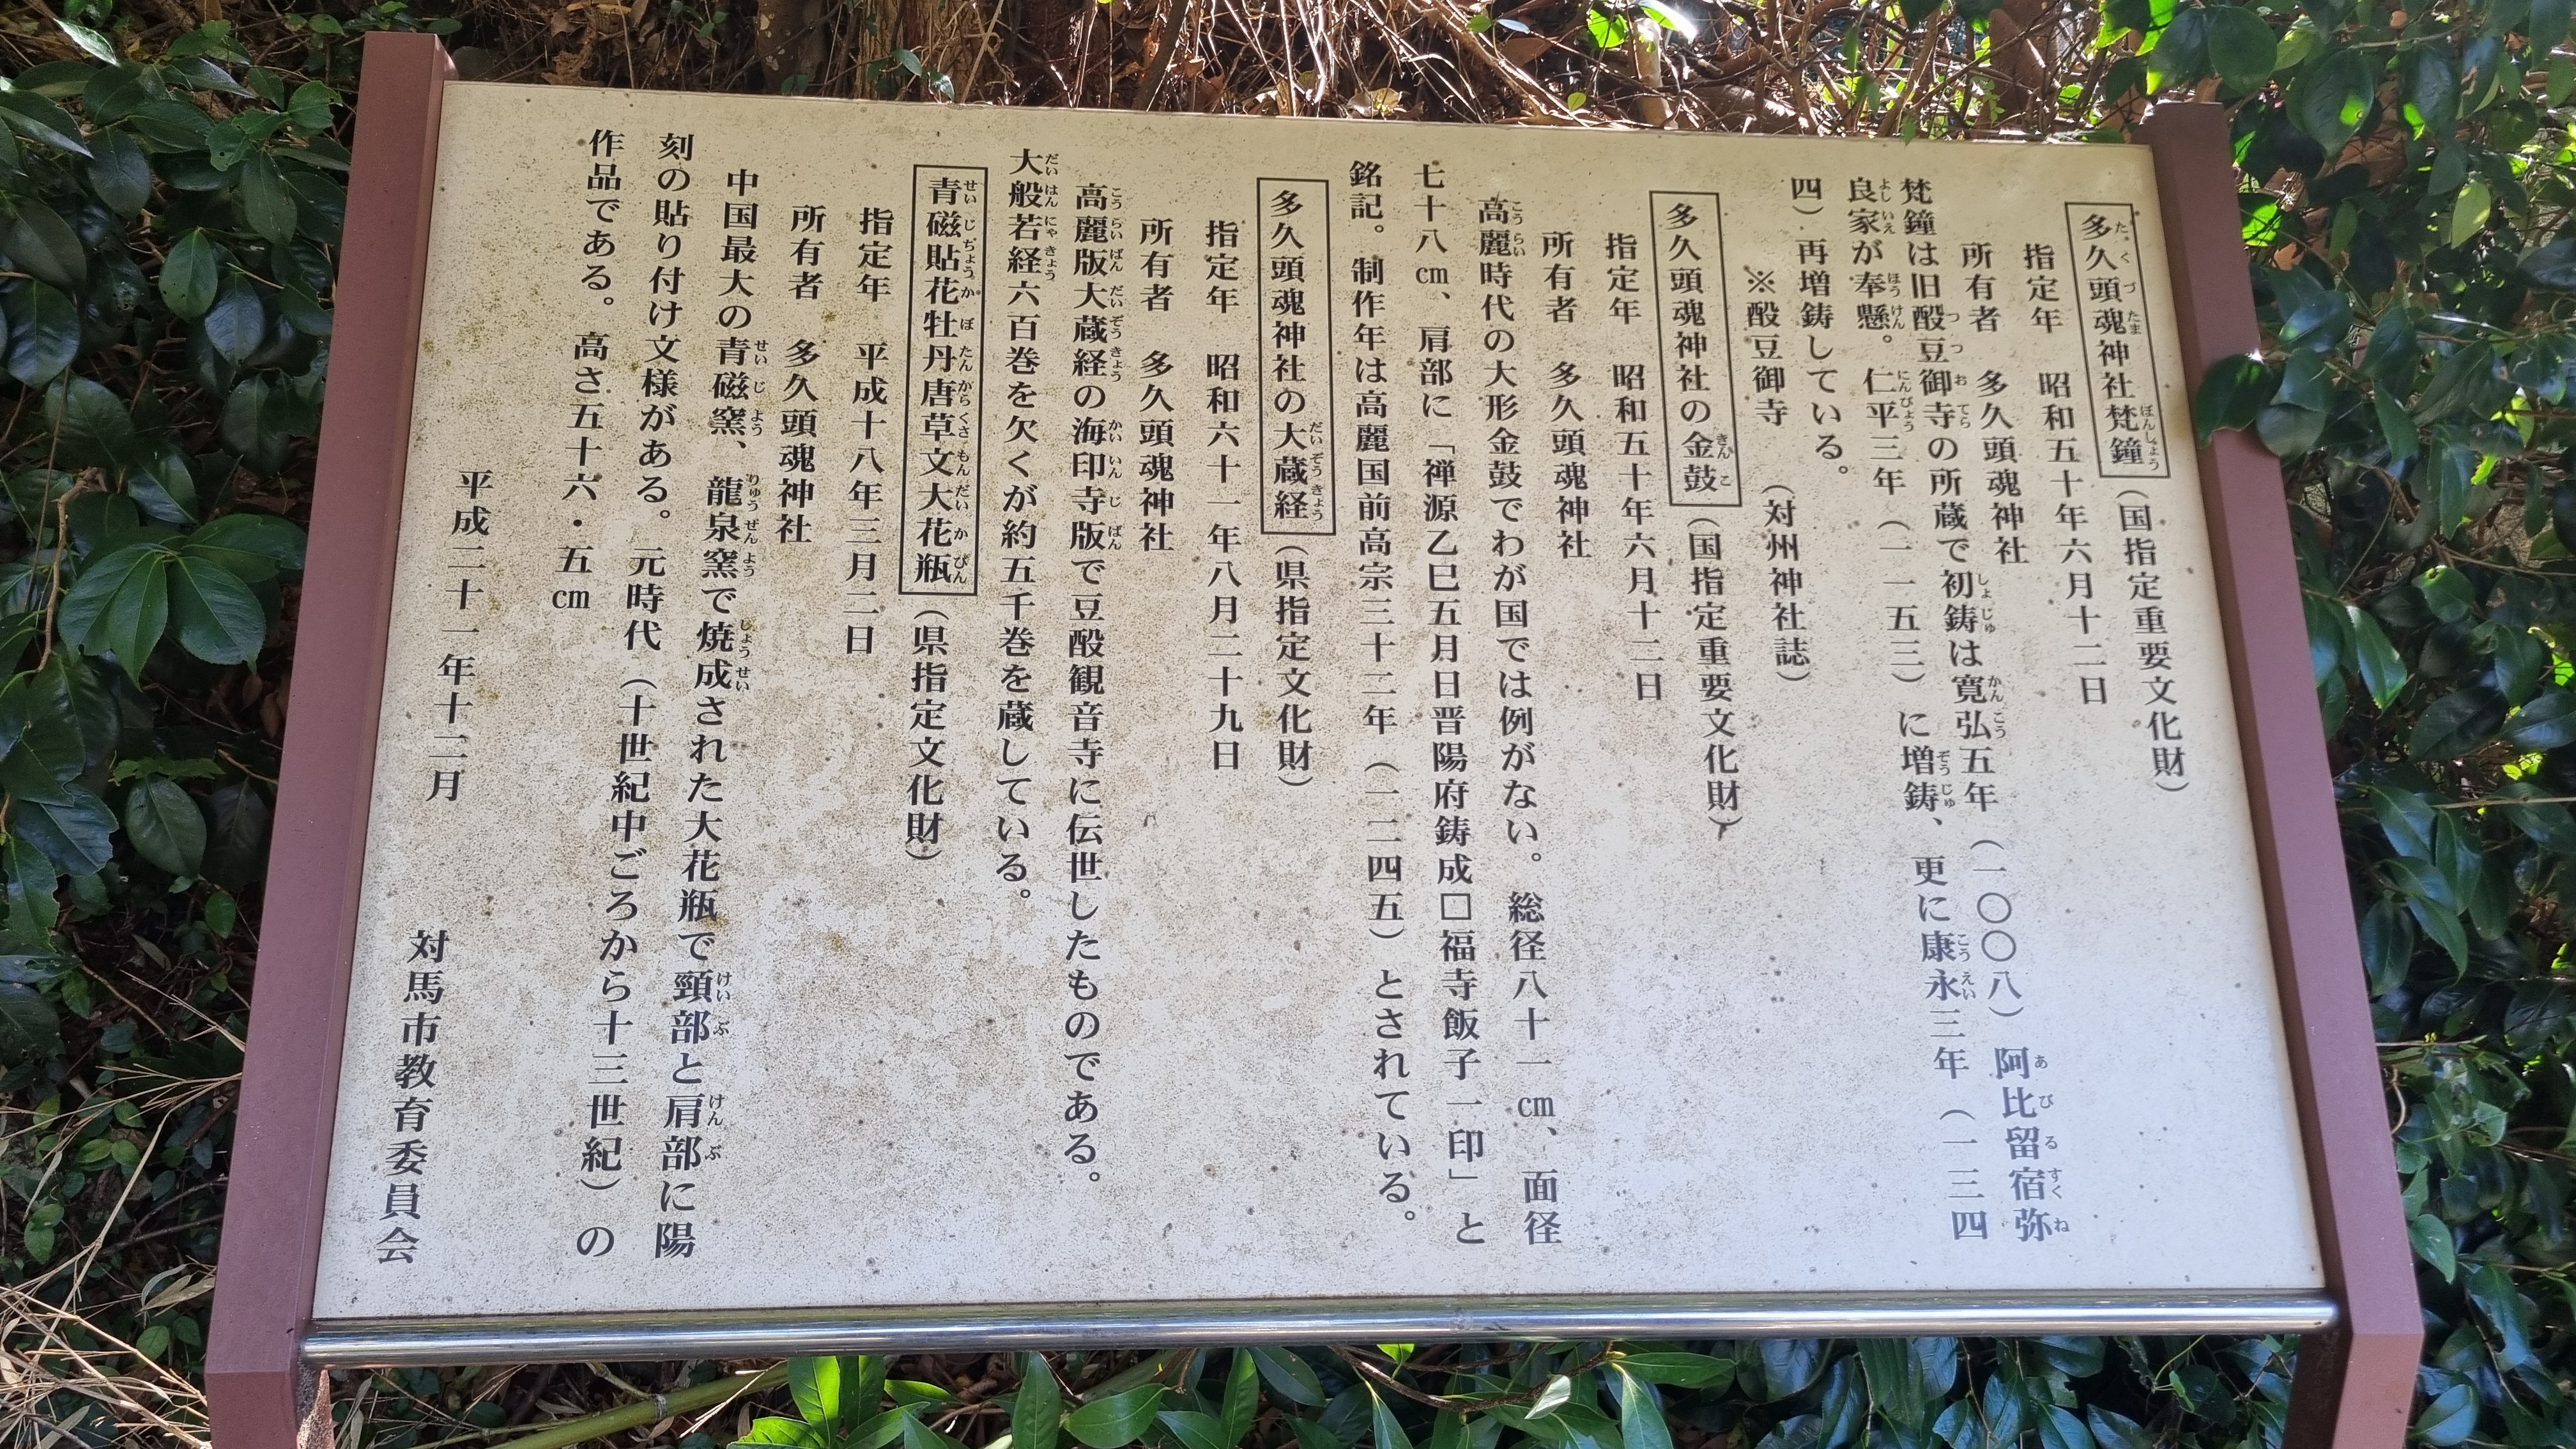 多久頭魂神社梵鐘（国指定重要文化財）
指定年　昭和五十年六月十二日
所有者　多久頭魂神社
梵鐘は旧酘豆御寺の所蔵で初鋳は寛弘五年（一〇〇八）阿比留宿弥
良家が奉懸。仁平三年（一一五三）に増鋳、更に康永三年（一三四
四）再増鋳している。
※酘豆御寺　（対州神社誌）
多久頭魂神社の金鼓（国指定重要文化財）
指定年　昭和五十年六月十二日
所有者　多久頭魂神社
高麗時代の大形金鼓でわが国では例がない。総径八十一㎝、面径
七十八㎝、肩部に「禅源乙巳五月日晋陽府鋳成□福寺飯子一印」と
銘記。制作年は高麗国前高宗三十二年（一二四五）とされている。
多久頭魂神社の大蔵経（県指定文化財）
指定年　昭和六十一年八月二十九日
所有者　多久頭魂神社
高麗版大蔵経の海印寺版で豆酘観音寺に伝世したものである。
大般若経六百巻を欠くが約五千巻を蔵している。
青磁貼花牡丹唐草文大花瓶（県指定文化財）
指定年　平成十八年三月二日
所有者　多久頭魂神社
中国最大の青磁窯、龍泉窯で焼成された大花瓶で頸部と肩部に陽
刻の貼り付け文様がある。元時代（十世紀中ごろから十三世紀）の
作品である。高さ五十六・五㎝
平成二十一年十二月
対馬市教育委員会